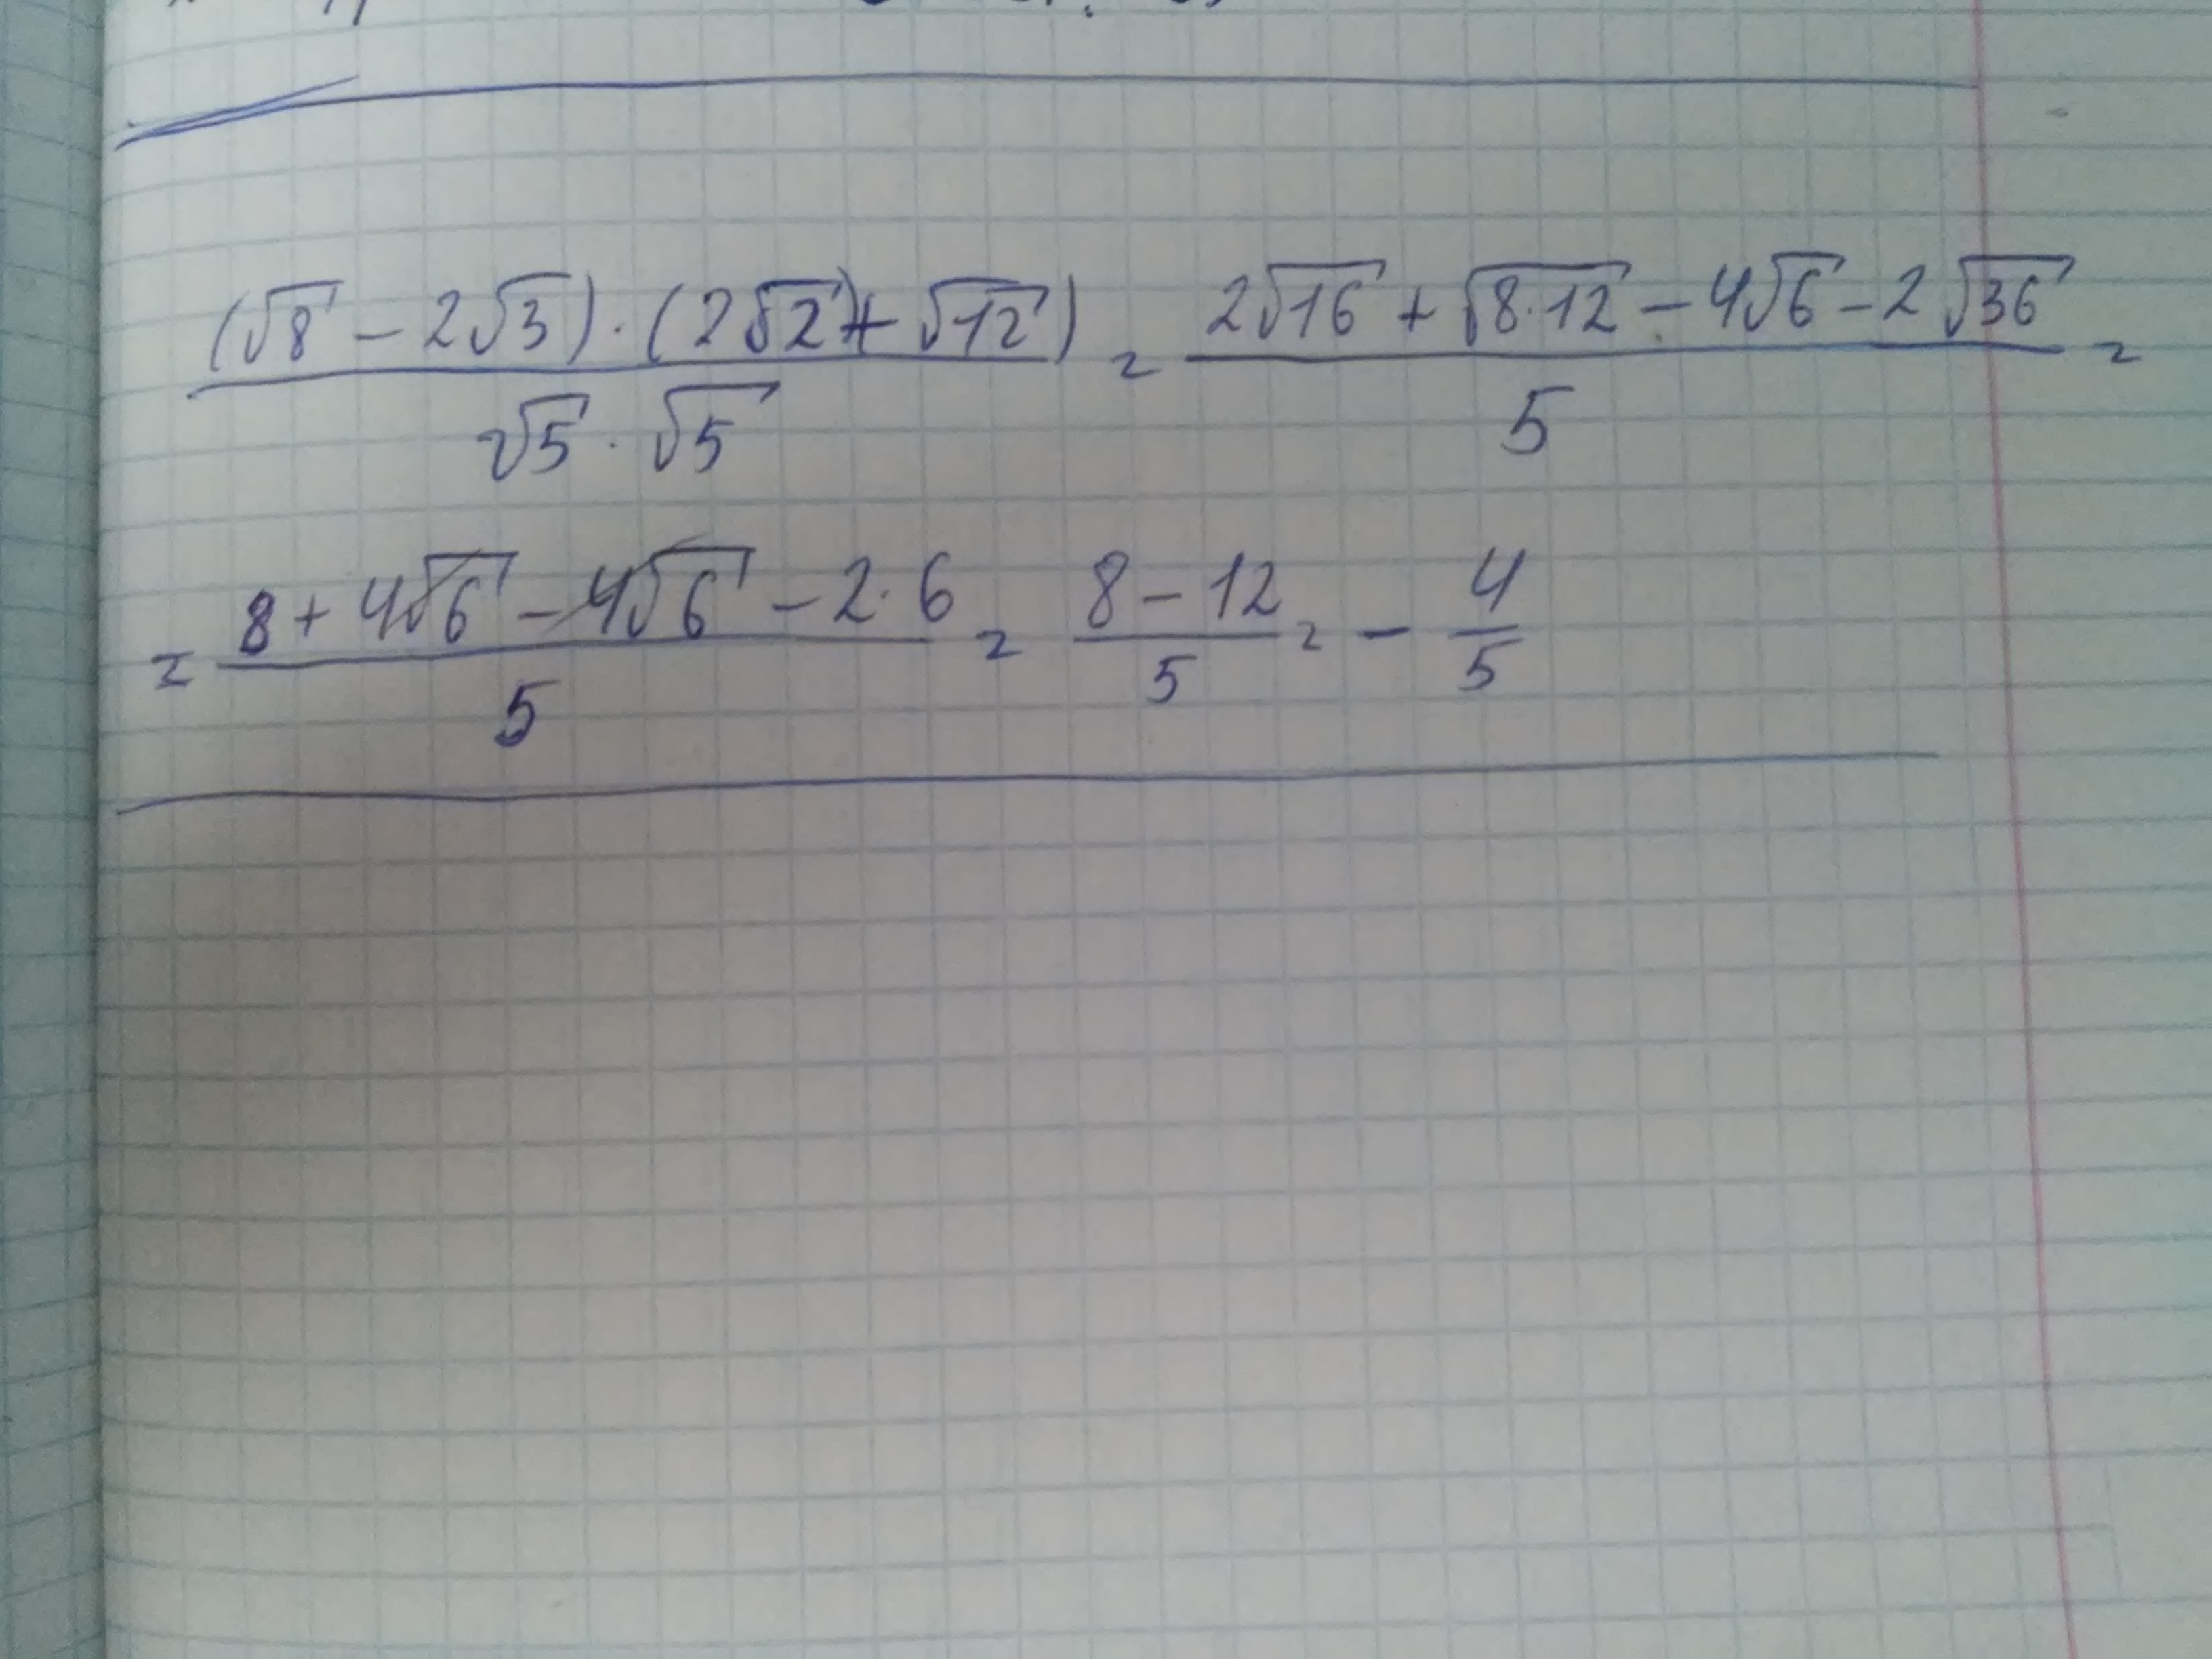 (√8 − 2√3) · (2√2) + √12) / √5 · √5 = 2√16 + √8·12 − 4√6 − 2√36 / 5 =
= 8 + 4√6 − 4√6 − 2·6 / 5 = 8 − 12 / 5 = − 4/5